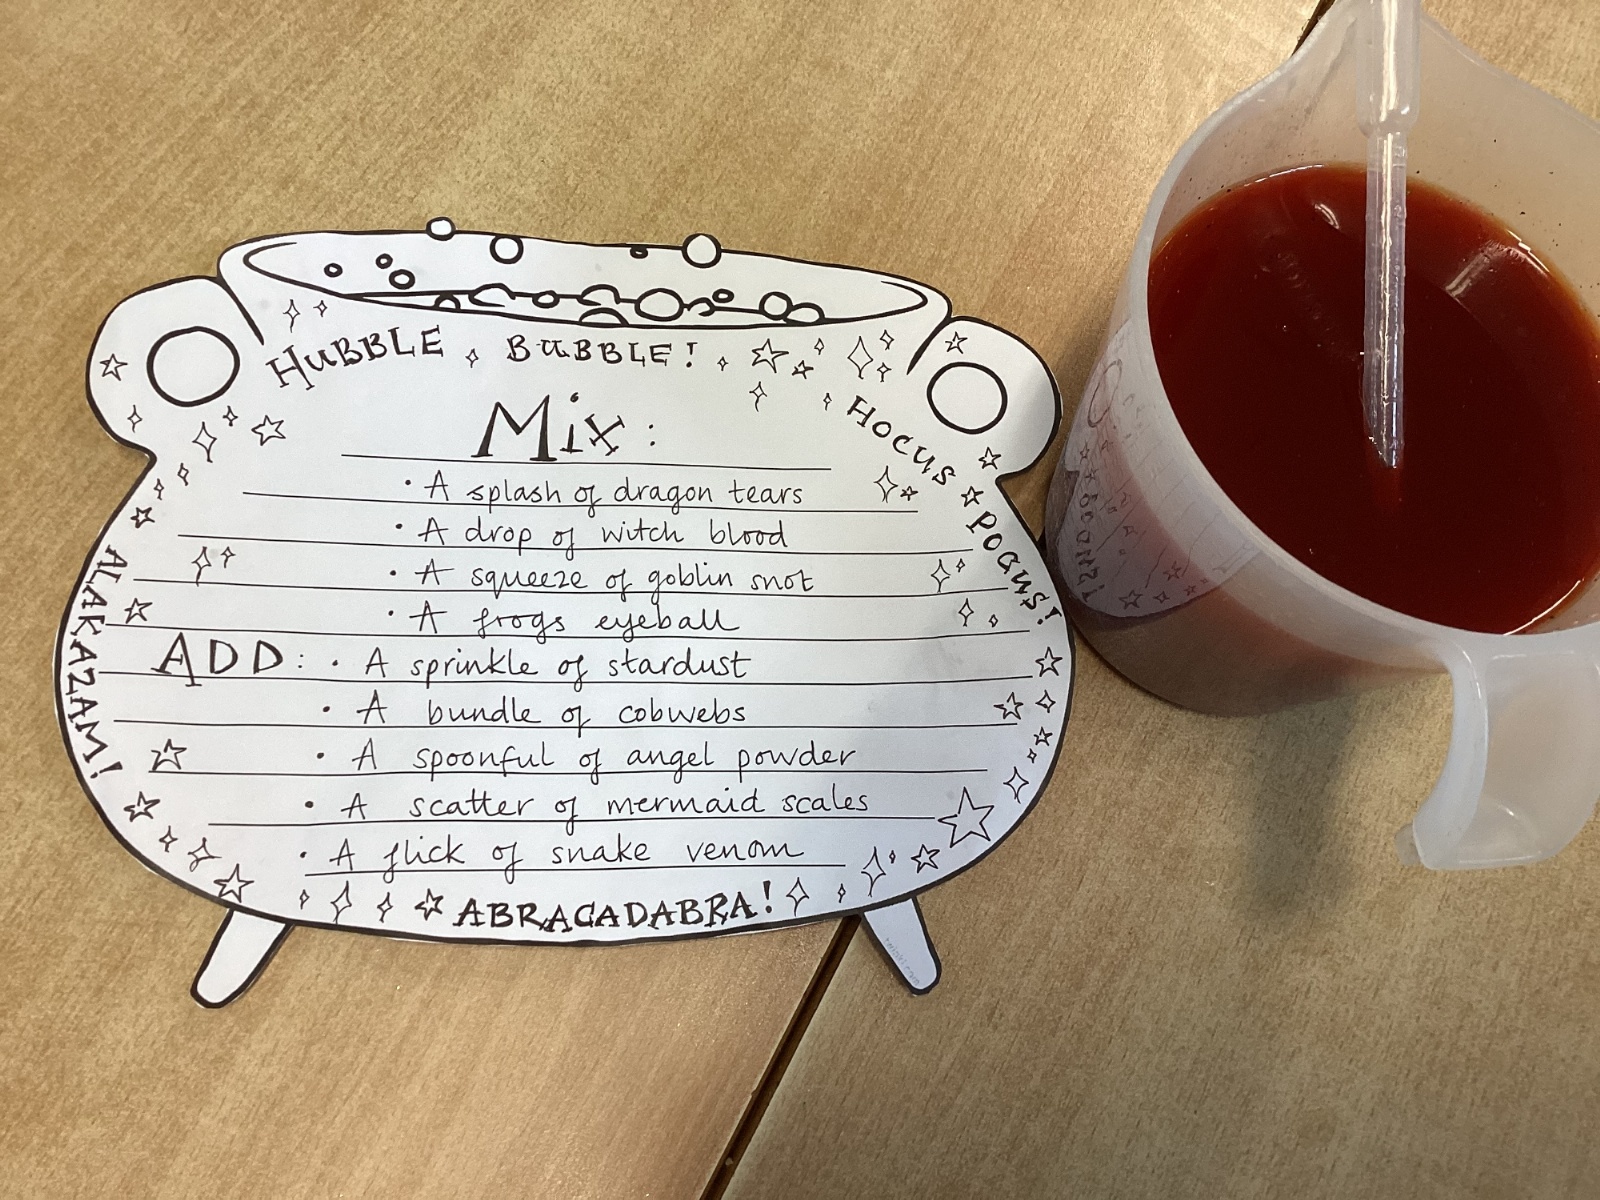 HUBBLE BUBBLE!
HOCUS POCUS!
Mix:
• A splash of dragon tears
• A drop of witch blood
• A squeeze of goblin snot
• A frogs eyeball
ADD: • A sprinkle of stardust
• A bundle of cobwebs
• A spoonful of angel powder
• A scatter of mermaid scales
• A flick of snake venom
ALAKAZAM!
ABRACADABRA!